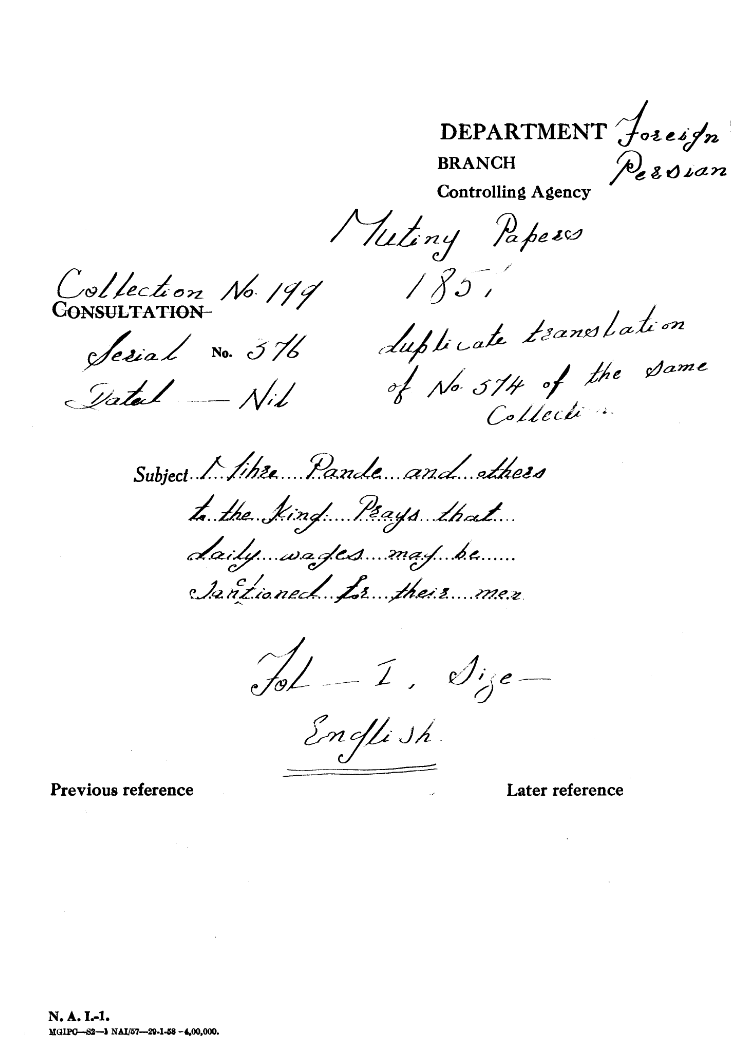 DEPARTMENT Foreign
BRANCH Persian
Controlling Agency
Mutiny Papers
Collection No. 199 1857
CONSULTATION
Serial No. 576 duplicate translation
Dated — Nil of No. 574 of the same
Collection
Subject Mihre Pande and others
to the King. Prays that
daily wages may be
sanctioned for their men
Fol — I, Size —
English
Previous reference Later reference
N. A. I.-1.
MGIPC—S2—1 NAI/57—29-1-58 —4,00,000.